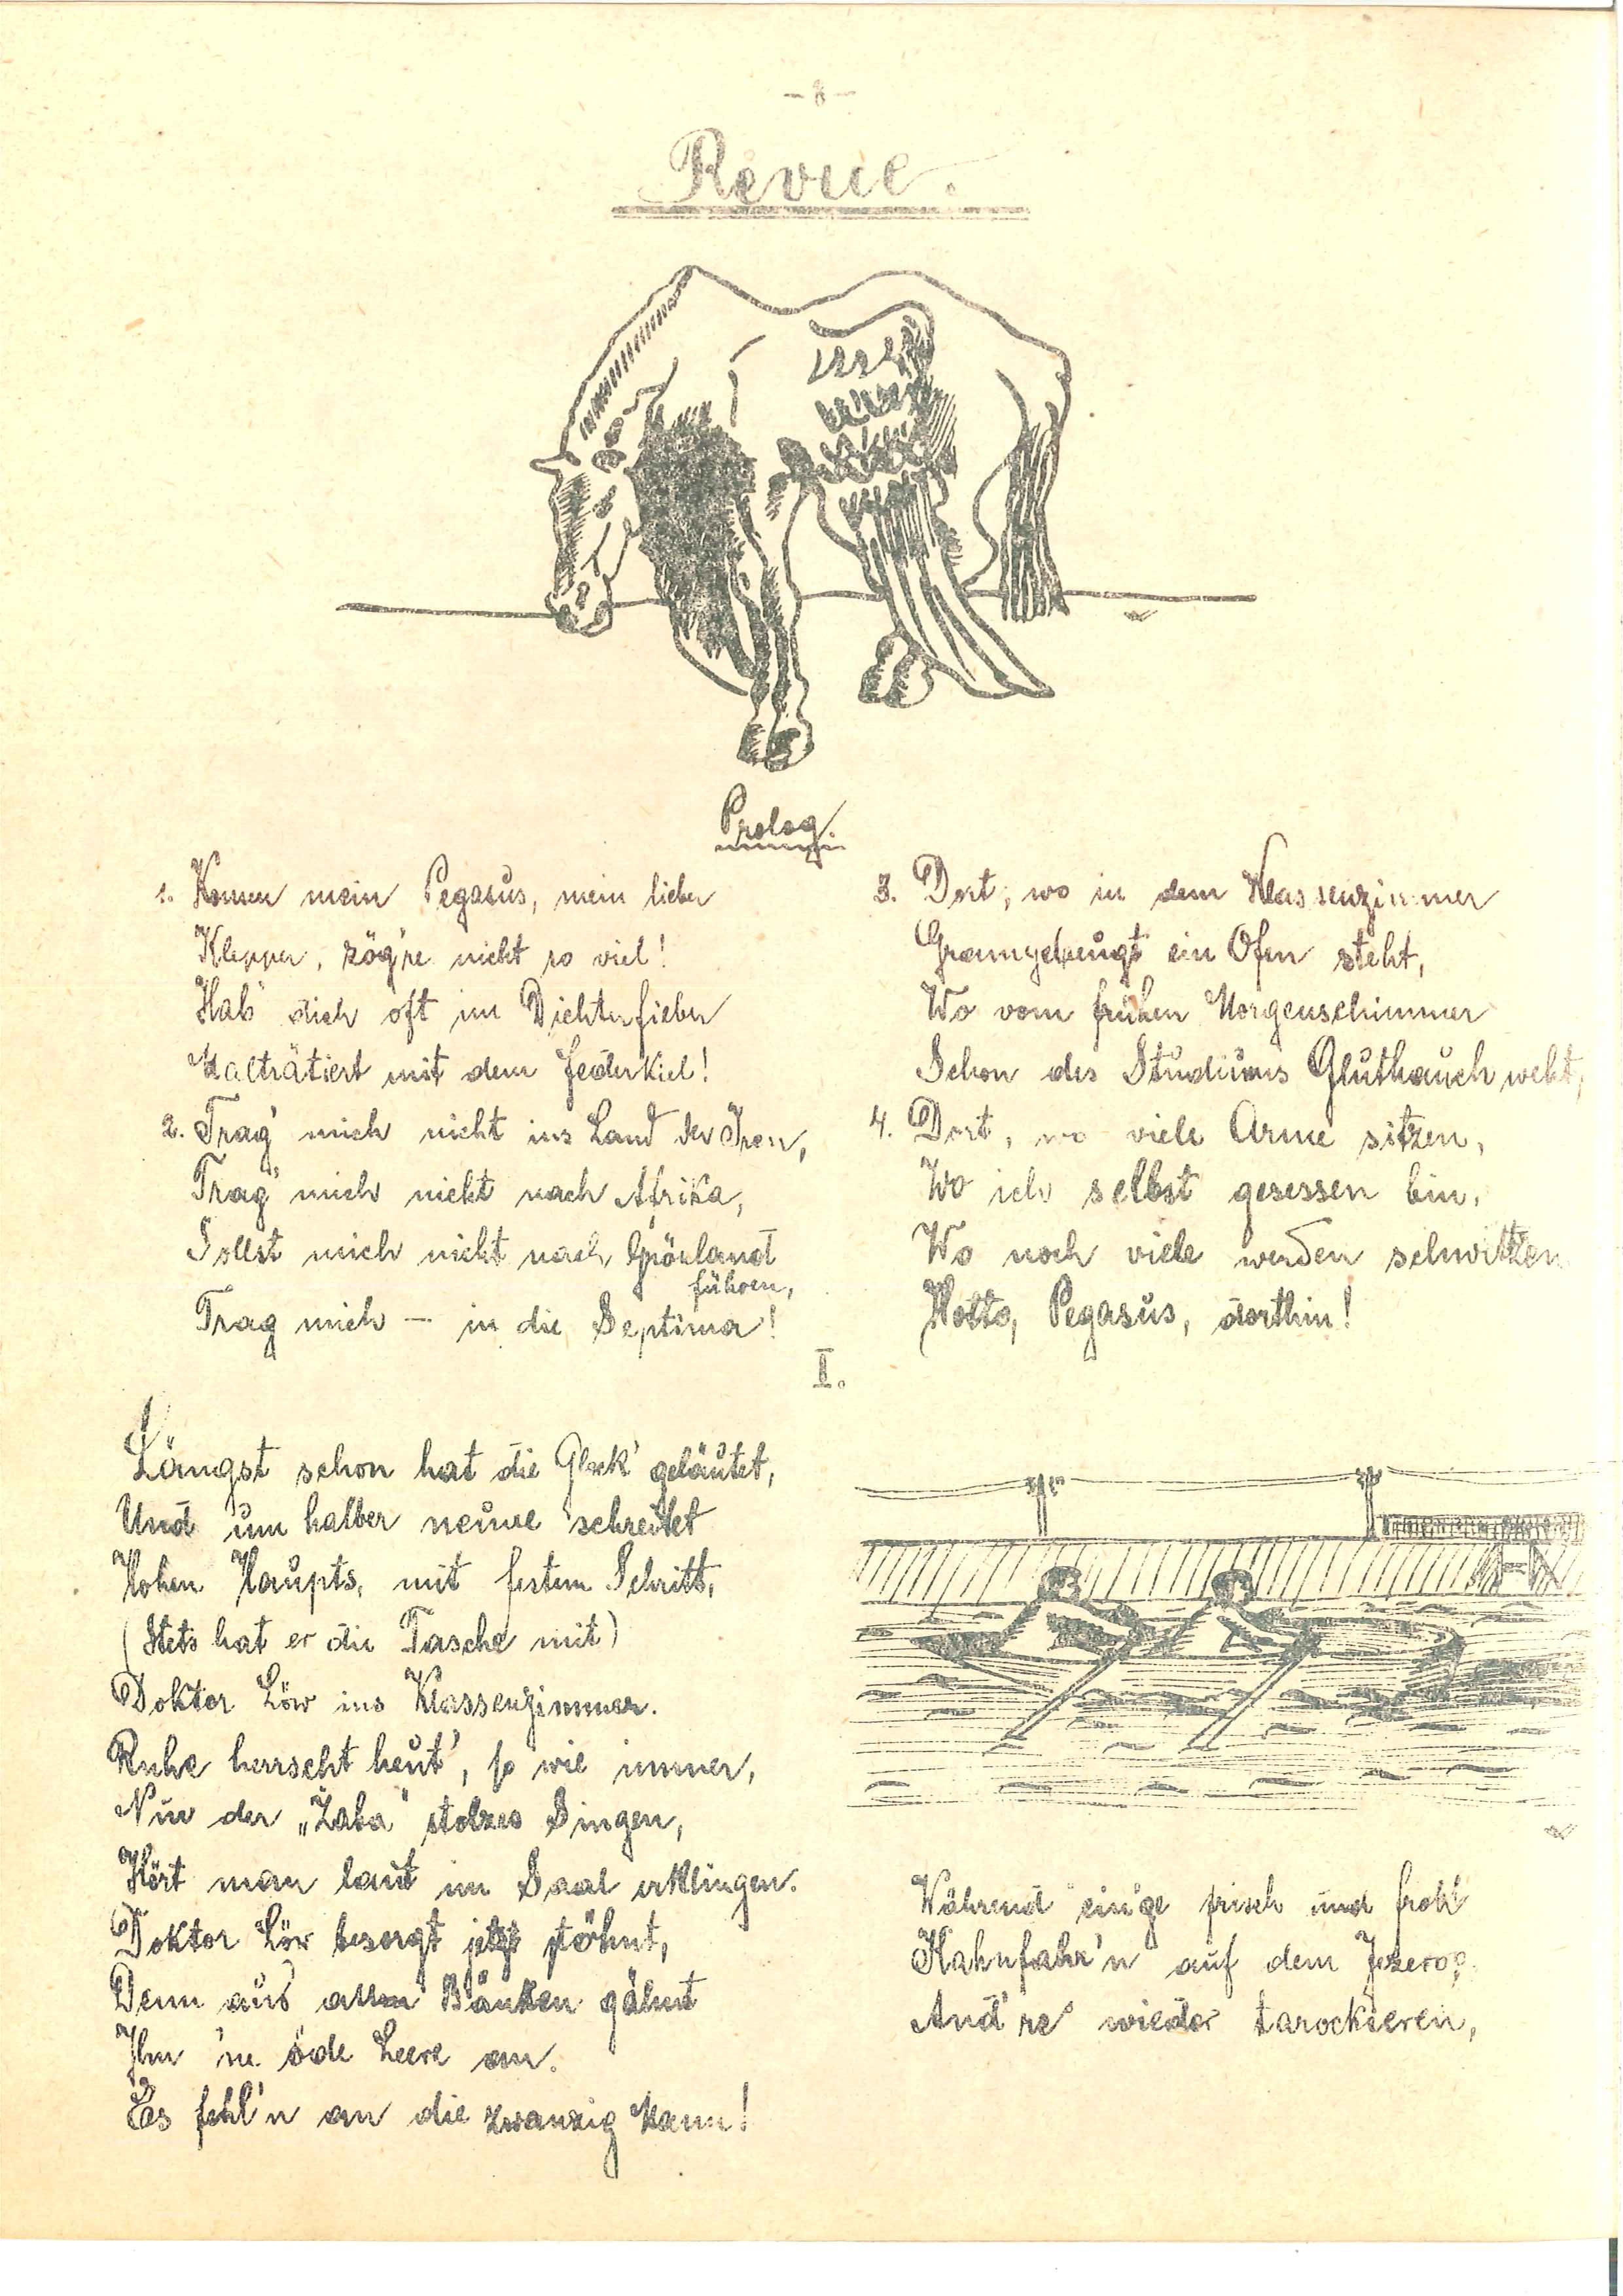 Revue.
Prolog.
1. Komm mein Pegasus, mein lieber
Klepper, zög're nicht so viel!
Hab' dich oft im Dichterfieber
Malträtiert mit dem Federkiel!
2. Trag' mich nicht ins Land der Iren,
Trag' mich nicht nach Afrika,
Sollst mich nicht nach Grönland
führen,
Trag mich — in die Septima!
3. Dort, wo in dem Klassenzimmer
Gramgebeugt ein Ofen steht,
Wo vom frühen Morgenschimmer
Schon des Studiums Gluthauch weht,
4. Dort, wo viele Arme sitzen,
Wo ich selbst gesessen bin,
Wo noch viele werden schwitzen
Hotto, Pegasus, dorthin!
I.
Längst schon hat die Glock' geläutet,
Und um halber neune schreitet
Hohen Haupts, mit festem Schritt,
(Stets hat er die Tasche mit)
Doktor Löw ins Klassenzimmer.
Ruhe herrscht heut', so wie immer,
Nur der „Žaba" stolzes Singen,
Hört man laut im Saal erklingen.
Doktor Löw besorgt jetzt stöhnt,
Denn aus allen Bänken gähnt
Ihm 'ne öde Leere an.
Es fehl'n an die zwanzig Mann!
Während ein'ge frisch und froh
Kahnfahr'n auf dem Jezero,
And're wieder tarockieren,